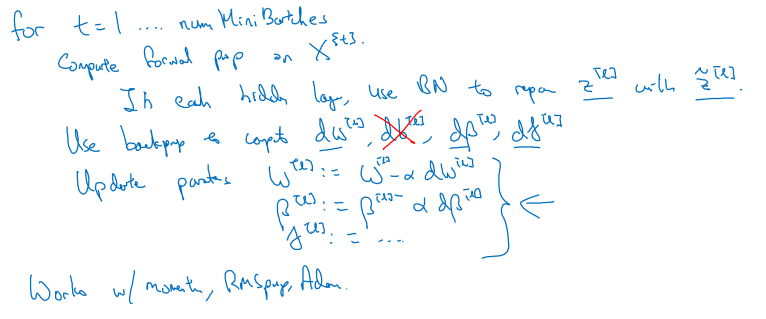 for t = 1 .... num Mini Batches
Compute forward prop on X^{t}.
In each hidden layer, use BN to replace z^[l] with z̃^[l].
Use backprop to compute dw^[l], db^[l], dβ^[l], dγ^[l]
Update parameters w^[l] := w^[l] - α dw^[l]
β^[l] := β^[l] - α dβ^[l]
γ^[l] := ....
Works w/ momentum, RMSprop, Adam.